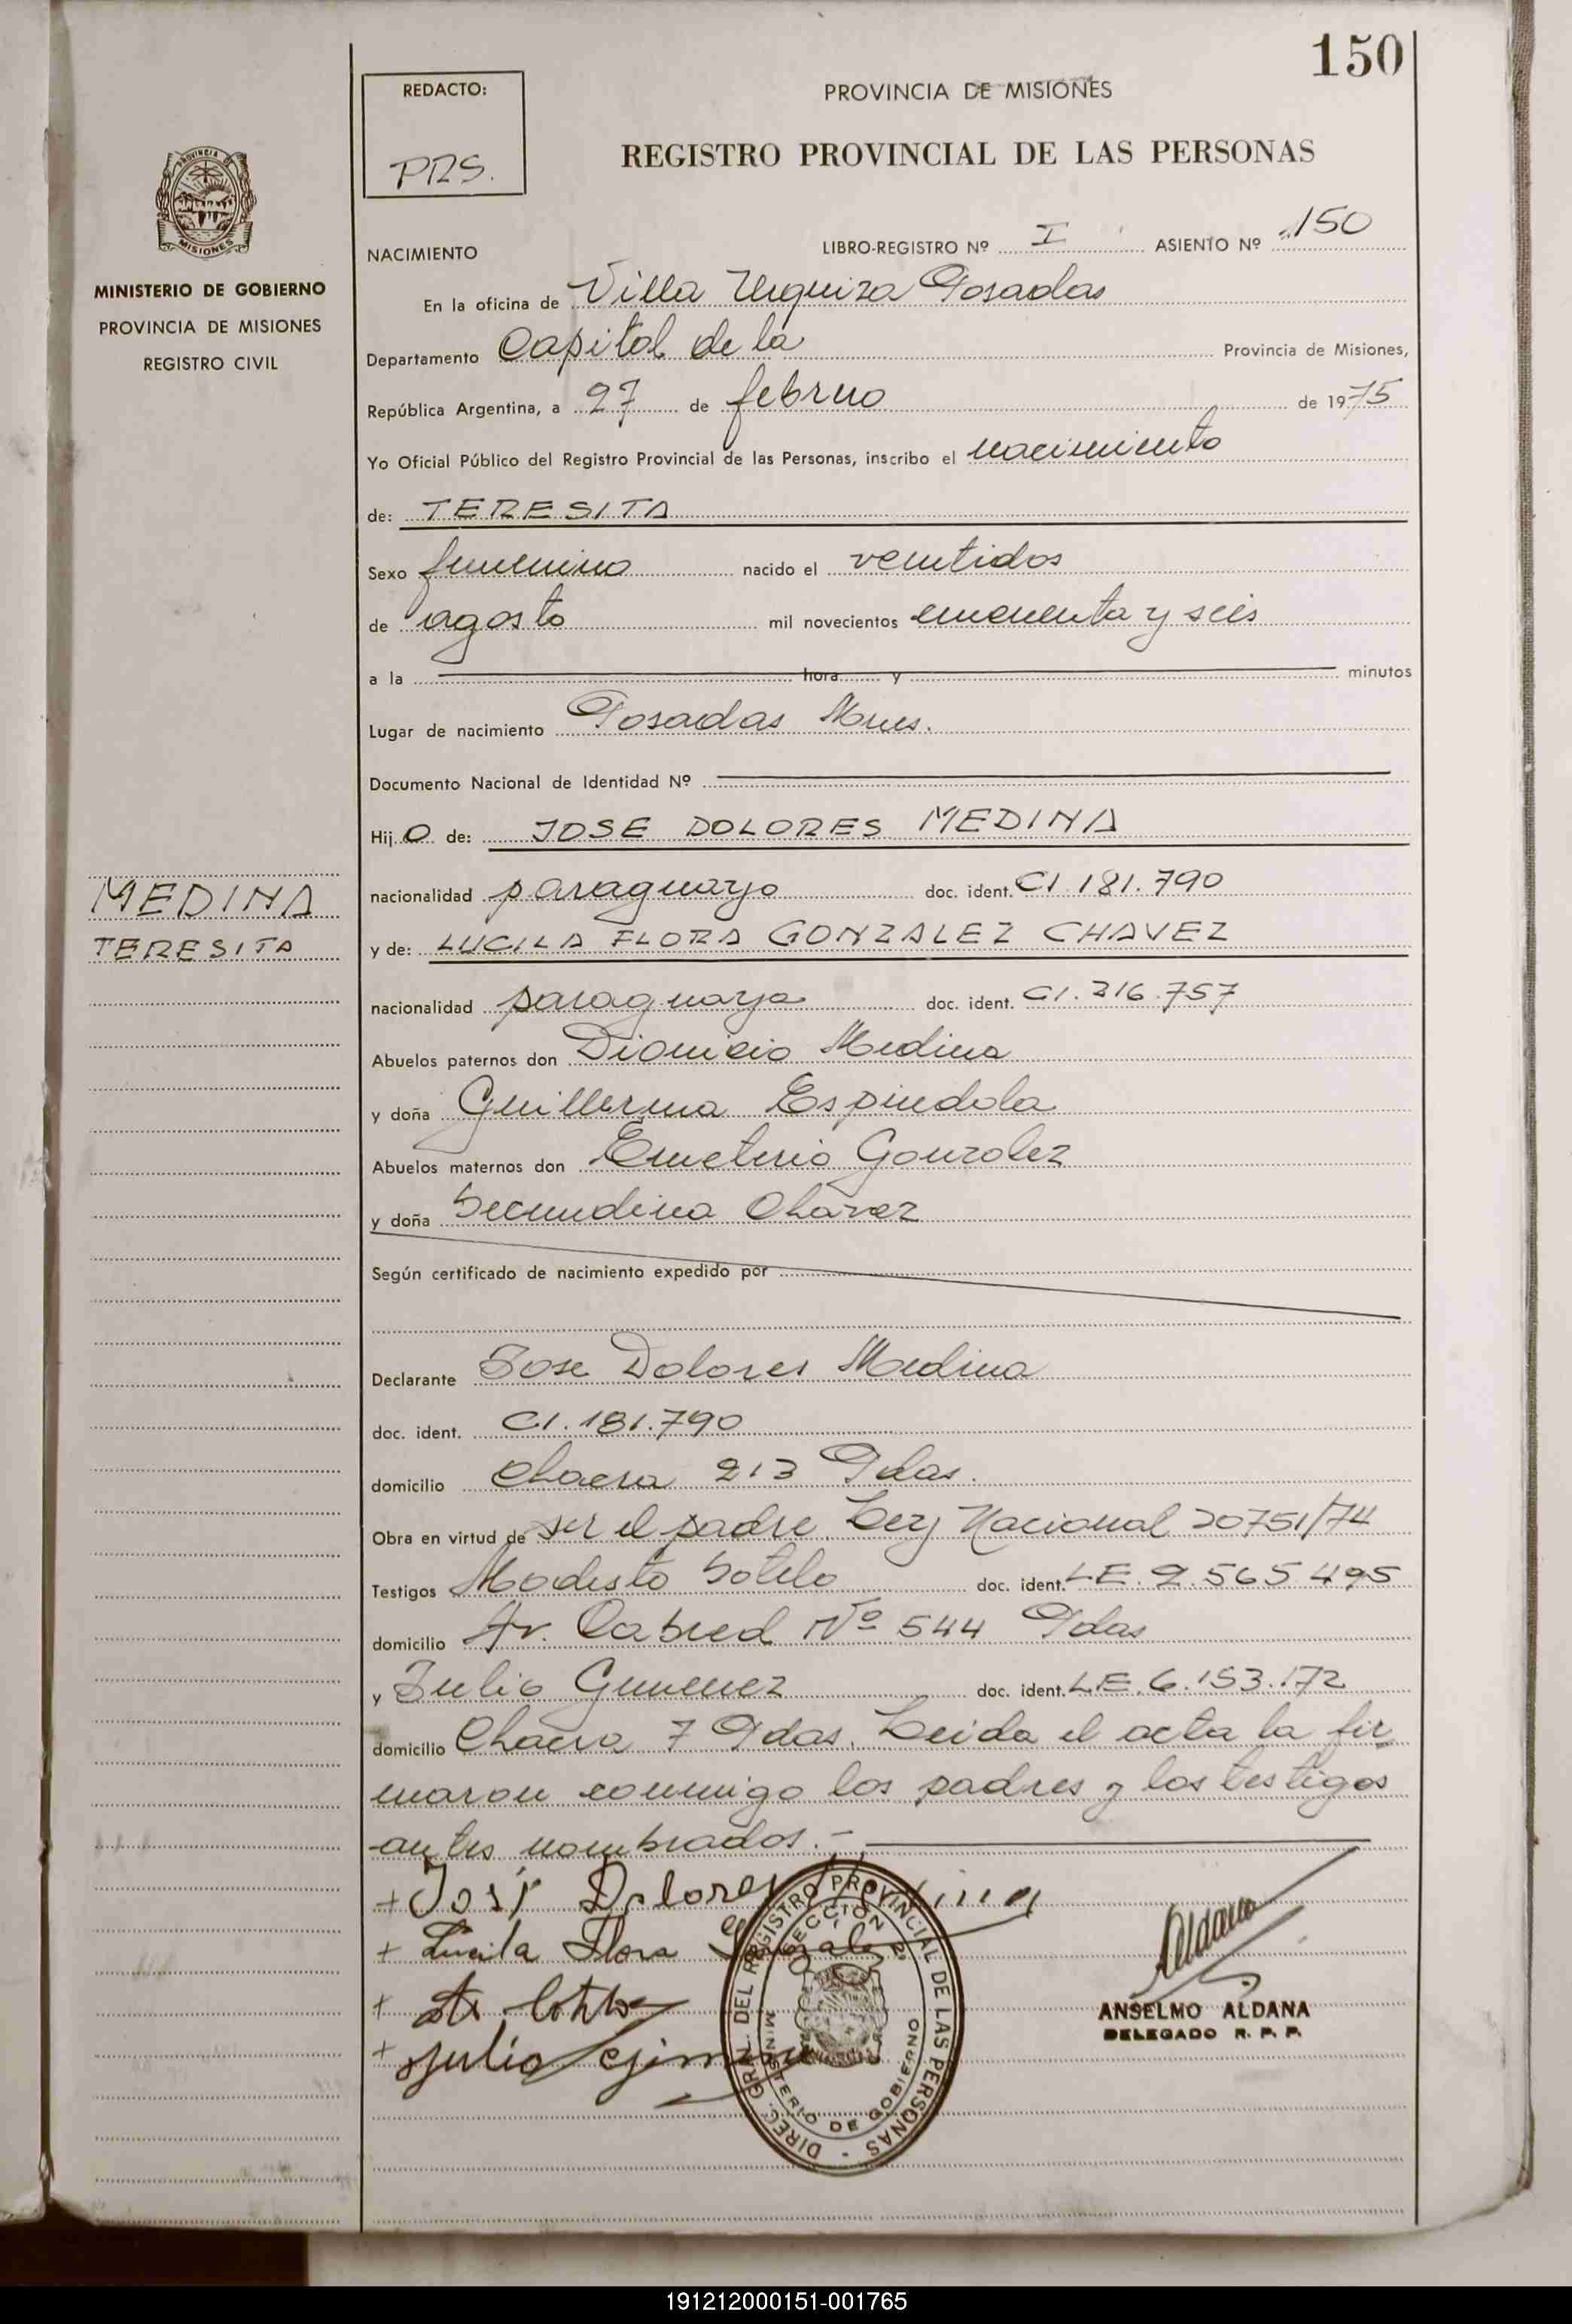 150
REDACTO:
PRS.
PROVINCIA DE MISIONES
REGISTRO PROVINCIAL DE LAS PERSONAS
PROVINCIA DE
MISIONES
MINISTERIO DE GOBIERNO
PROVINCIA DE MISIONES
REGISTRO CIVIL
NACIMIENTO LIBRO-REGISTRO Nº I ASIENTO Nº 150
En la oficina de Villa Urquiza Posadas
Departamento Capital de la Provincia de Misiones,
República Argentina, a 27 de febrero de 1975
Yo Oficial Público del Registro Provincial de las Personas, inscribo el nacimiento
de: TERESITA
Sexo femenino nacido el veintidos
de agosto mil novecientos cincuenta y seis
a la hora y minutos
Lugar de nacimiento Posadas Mnes.
Documento Nacional de Identidad Nº
Hijo de: JOSE DOLORES MEDINA
MEDINA
TERESITA
nacionalidad paraguayo doc. ident. CI 181.790
y de: LUCILA FLORA GONZALEZ CHAVEZ
nacionalidad paraguaya doc. ident. CI. 216.757
Abuelos paternos don Dionicio Medina
y doña Guillerma Espindola
Abuelos maternos don Emeterio Gonzalez
y doña Secundina Chavez
Según certificado de nacimiento expedido por
Declarante Jose Dolores Medina
doc. ident. CI. 181.790
domicilio Chacra 213 Pdas.
Obra en virtud de ser el padre. Ley Nacional 20751/74
Testigos Modesto Sotelo doc. ident. LE. 2.565 495
domicilio Av. Cabred Nº 544 Pdas
y Julio Gimenez doc. ident. LE. 6.153.172
domicilio Chacra 7 Pdas. Leida el acta la fir-
maron conmigo los padres y los testigos
antes nombrados.-
+ José Dolores Medina
+ Lucila Flora Gonzalez
+
+ julio gimenez
DIREC. GRAL. DEL REGISTRO PROVINCIAL DE LAS PERSONAS -
SECCION 2ª
MINISTERIO DE GOBIERNO
Aldana
ANSELMO ALDANA
DELEGADO R. P. P.
191212000151-001765